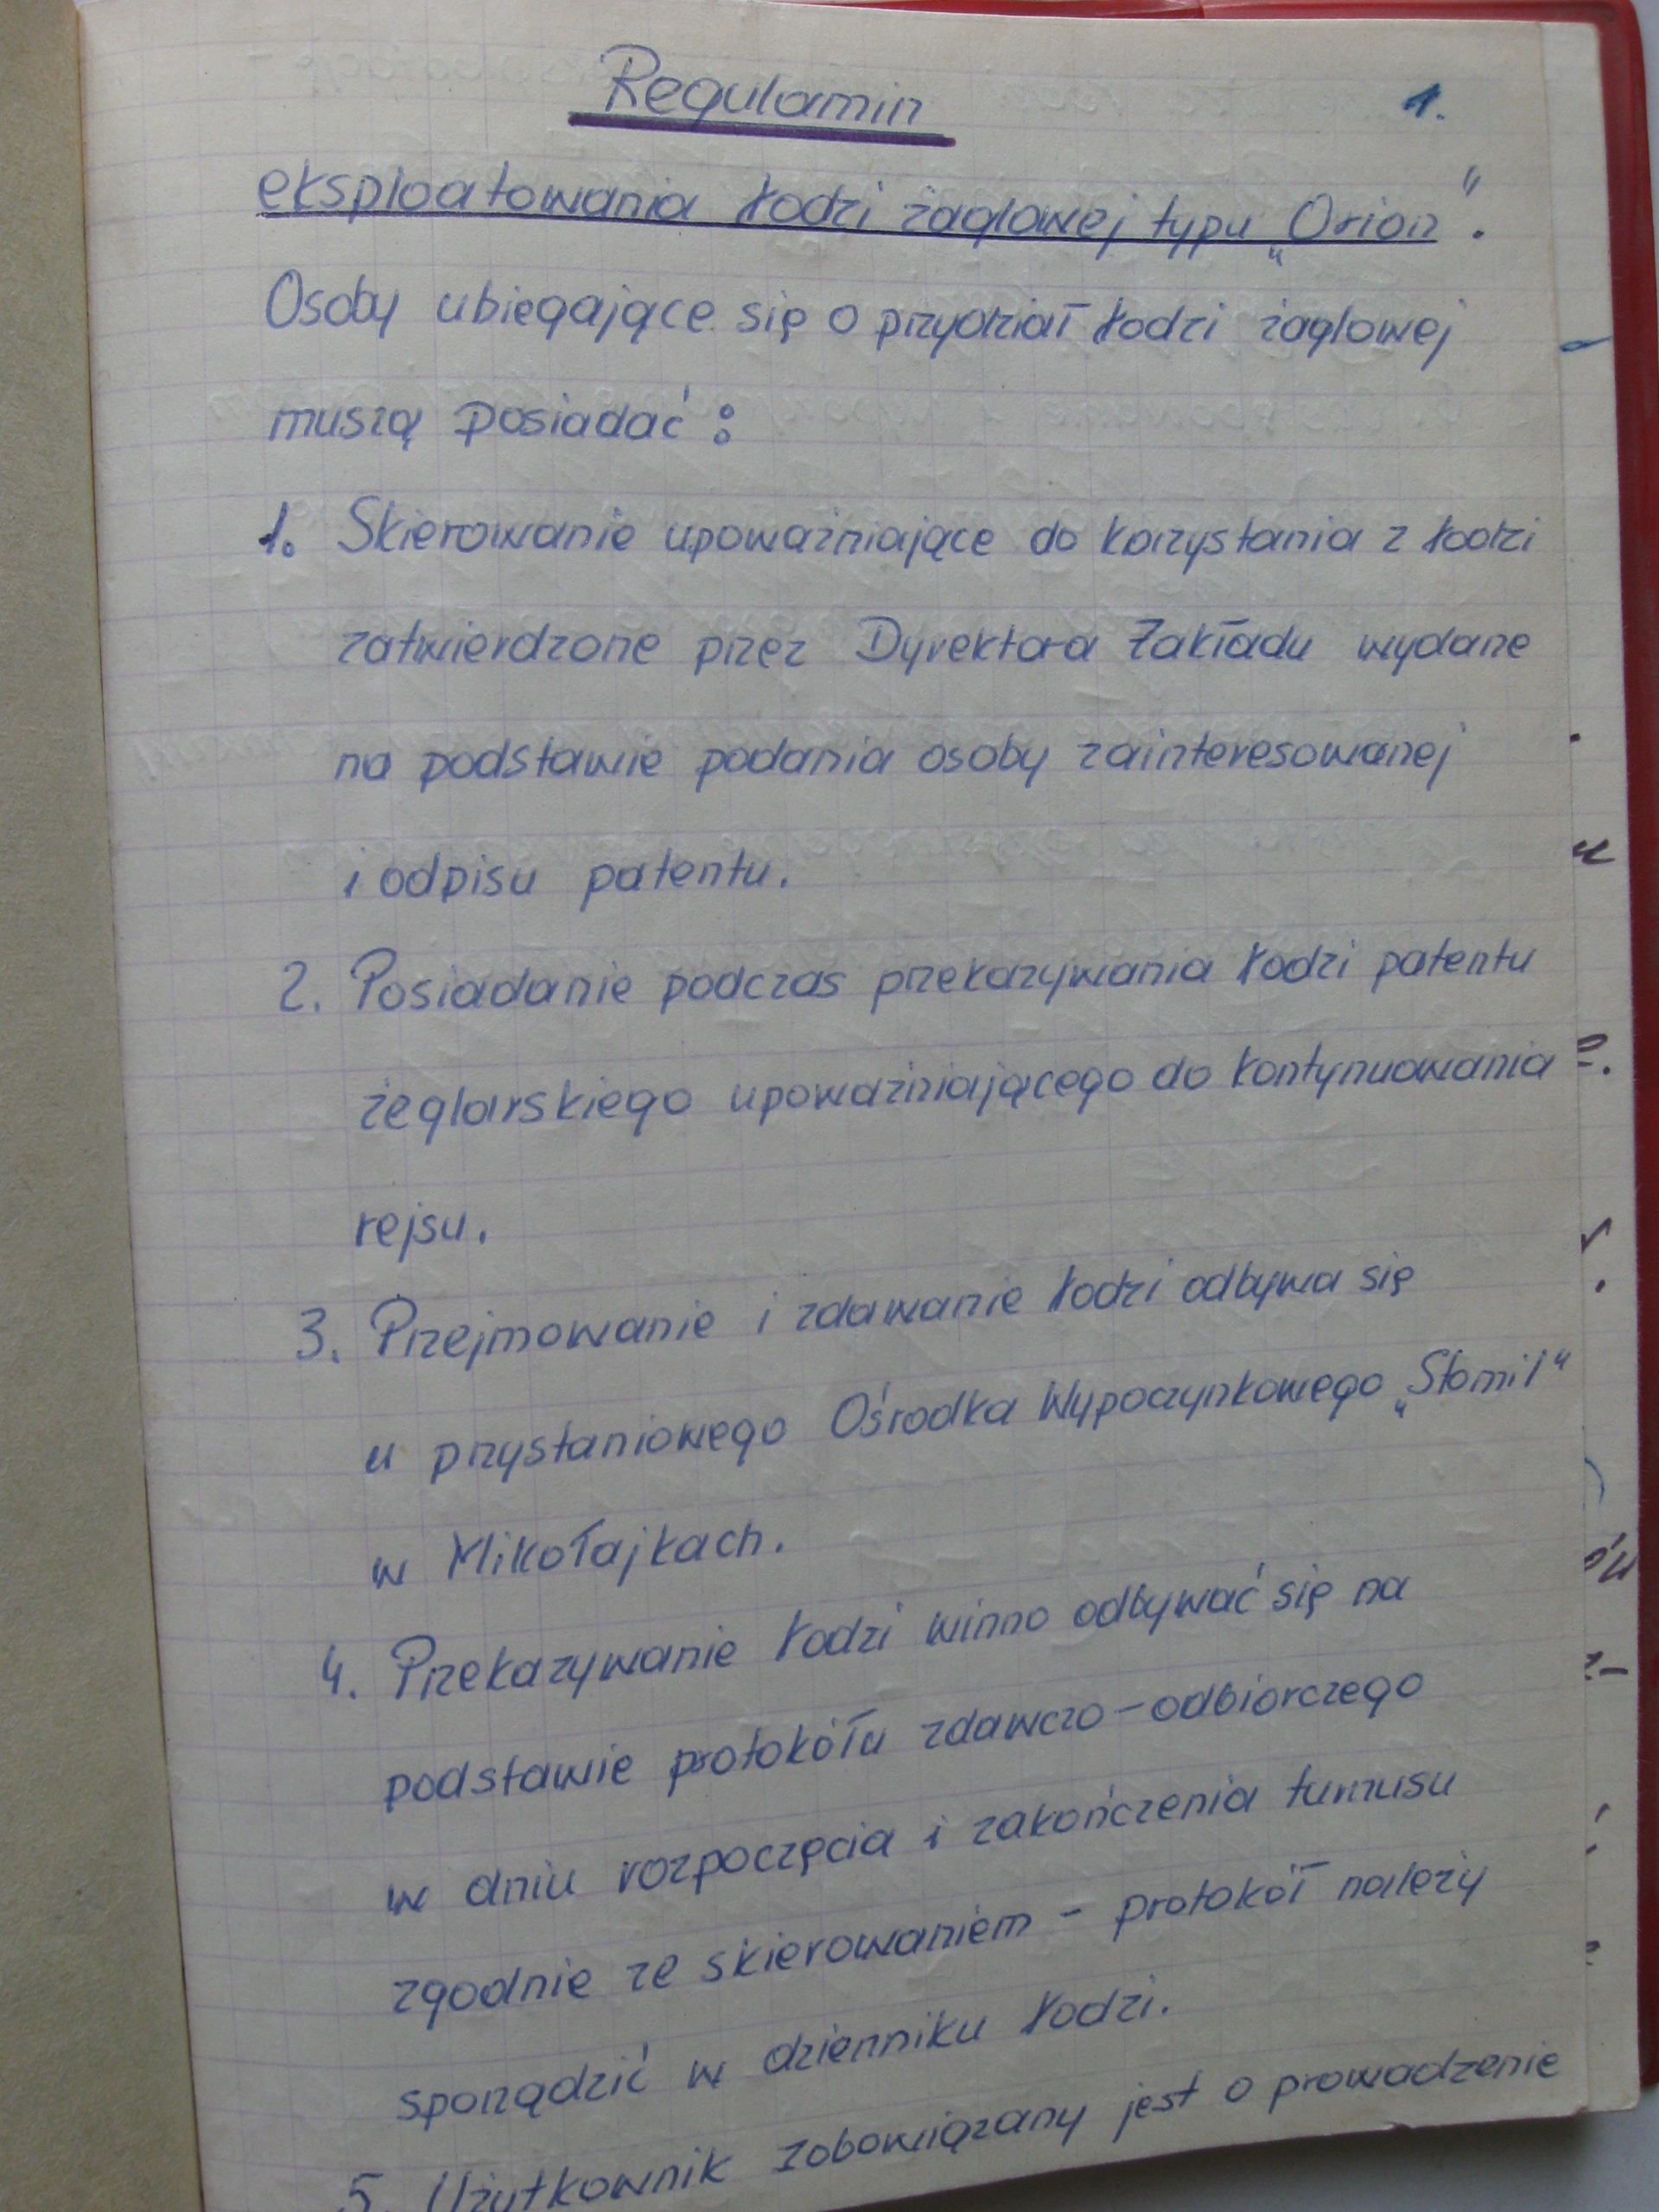 Regulamin
1.
eksploatowania łodzi żaglowej typu „Orion".
Osoby ubiegające się o przydział łodzi żaglowej
muszą posiadać:
1. Skierowanie upoważniające do korzystania z łodzi
zatwierdzone przez Dyrektora Zakładu wydane
na podstawie podania osoby zainteresowanej
i odpisu patentu.
2. Posiadanie podczas przekazywania łodzi patentu
żeglarskiego upoważniającego do kontynuowania
rejsu.
3. Przejmowanie i zdawanie łodzi odbywa się
u przystaniowego Ośrodka Wypoczynkowego „Stomil"
w Mikołajkach.
4. Przekazywanie łodzi winno odbywać się na
podstawie protokółu zdawczo-odbiorczego
w dniu rozpoczęcia i zakończenia turnusu
zgodnie ze skierowaniem - protokół należy
sporządzić w dzienniku łodzi.
5. Użytkownik zobowiązany jest o prowadzenie